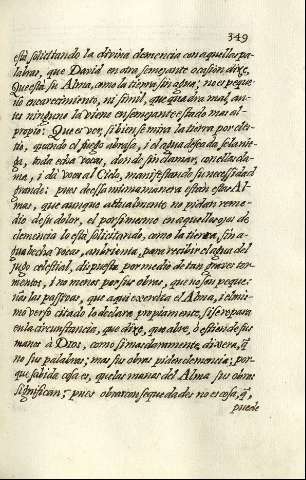 349
está solicitando la divina clemencia con aquellas pa-
labras, que David en otra semejante ocasión dixo,
Que está su Alma, como la tierra sin agua; no es peque-
ño encarecimiento, ni símil, que quadra mal, an-
tes ninguno la viene en semejante estado mas al
propio: Que es ver, si bien se mira la tierra por Es-
tio, quando el fuego abrasa, i el agua deseada, se la nie-
ga, toda echa vocas, donde sin clamar, con ellas cla-
ma, i dá voces al Cielo, manifestando su necesidad
grande: pues de esta misma manera están estas Al-
mas, que aunque actualmente no pidan reme-
dio de su dolor, el por si mismo en aquellos ojos de
clemencia lo está solicitando, como la tierra, sin a-
gua hecha vocas, ambrienta, para recibir el agua del
jugo celestial, dispuesta por medio de tan graves tor-
mentos, i no menos por sus obras, que no son peque-
ñas las passivas, que aqui exercita el Alma, i el mis-
mo verso citado lo declara, propiamente, si se repara
en la circunstancia, que dixo, que abre, ò estiende sus
manos à Dios, como si mas claramente dixera, q̃
no sus palabras; mas sus obras piden clemencia; por-
que sabida cosa es, que las manos del Alma sus obras
significan; pues obrar con sequedades no es cosa, q̃,
puede